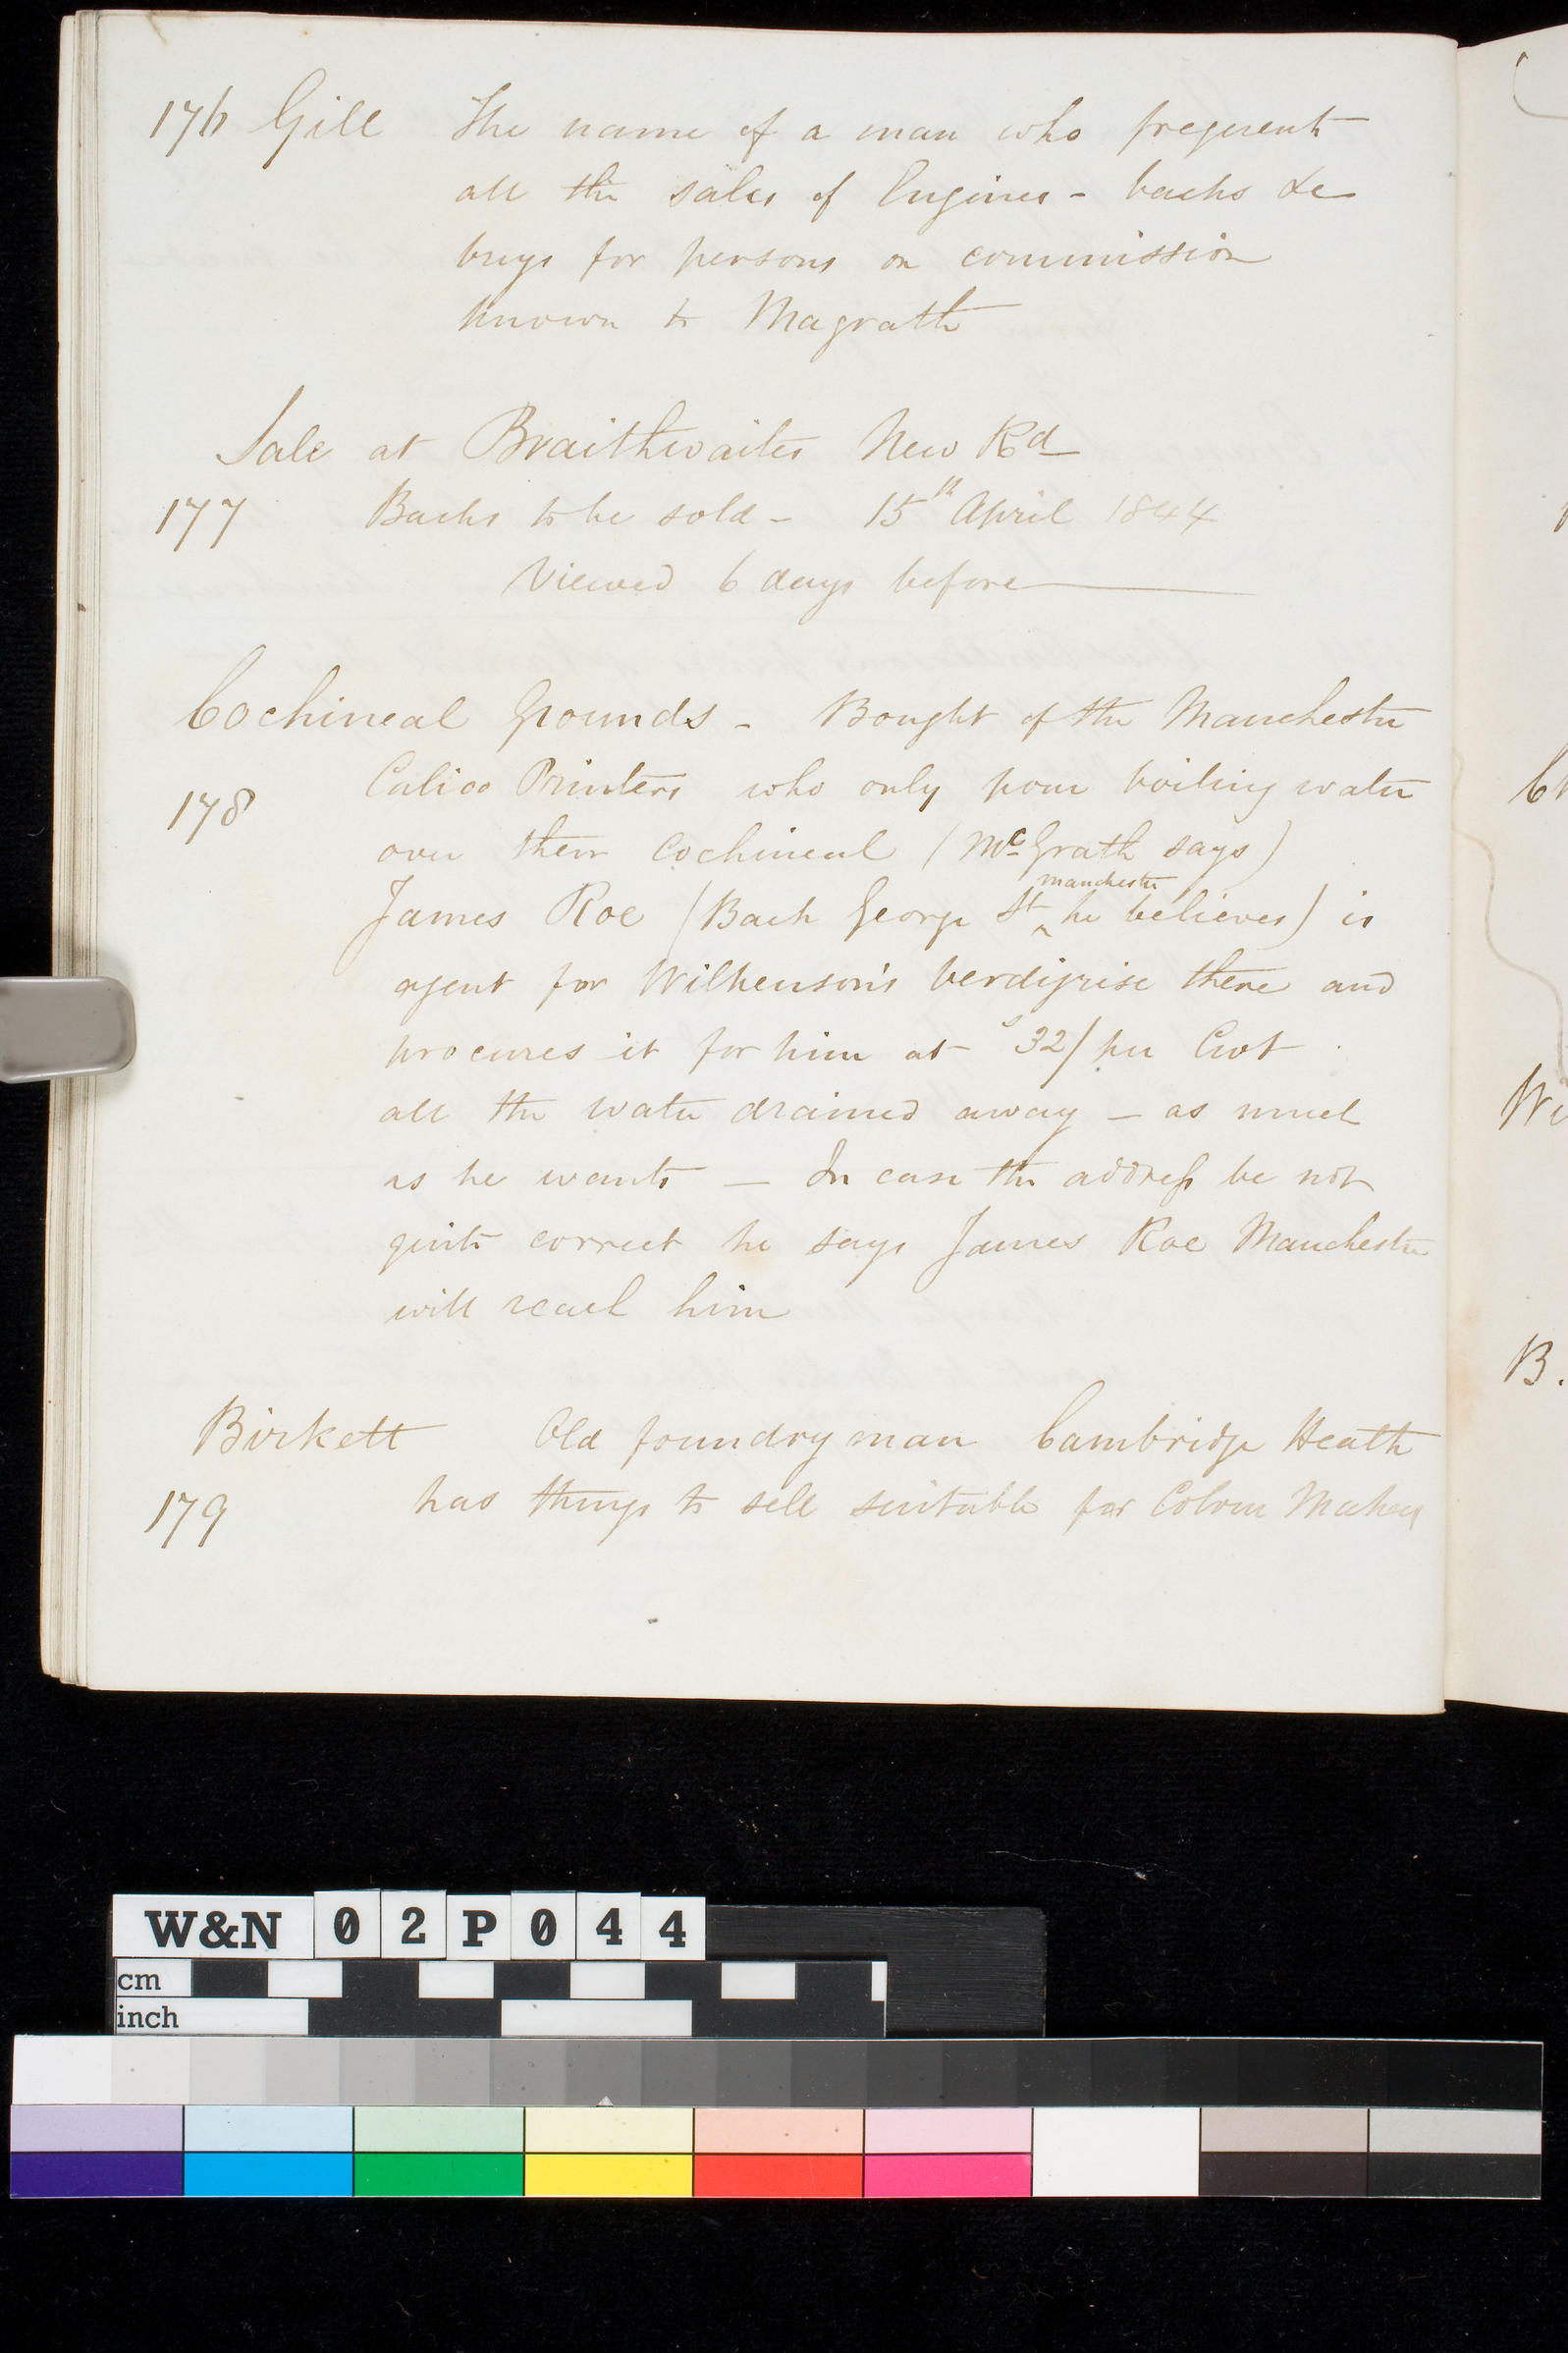 176 Gill The name of a man who frequents
all the sales of Engines - backs &c
buys for persons on commission
known to Magrath
Sale at Braithwaites New Rd
177 Backs to be sold - 15th April 1844
Viewed 6 days before
Cochineal Grounds - Bought of the Manchester
178 Calico Printers who only pour boiling water
over their Cochineal (McGrath says)
manchester
James Roe (Back George St ^ he believes) is
agent for Wilkenson's Verdigrise there and
procures it for him at s32/ per Cwt
all the water drained away - as much
as he wants - In case the address be not
quite correct he says James Roe Manchester
will reach him
Birkett Old foundry man Cambridge Heath
179 has things to sell suitable for Colour Makers
B.
W&N 02P044
cm
inch